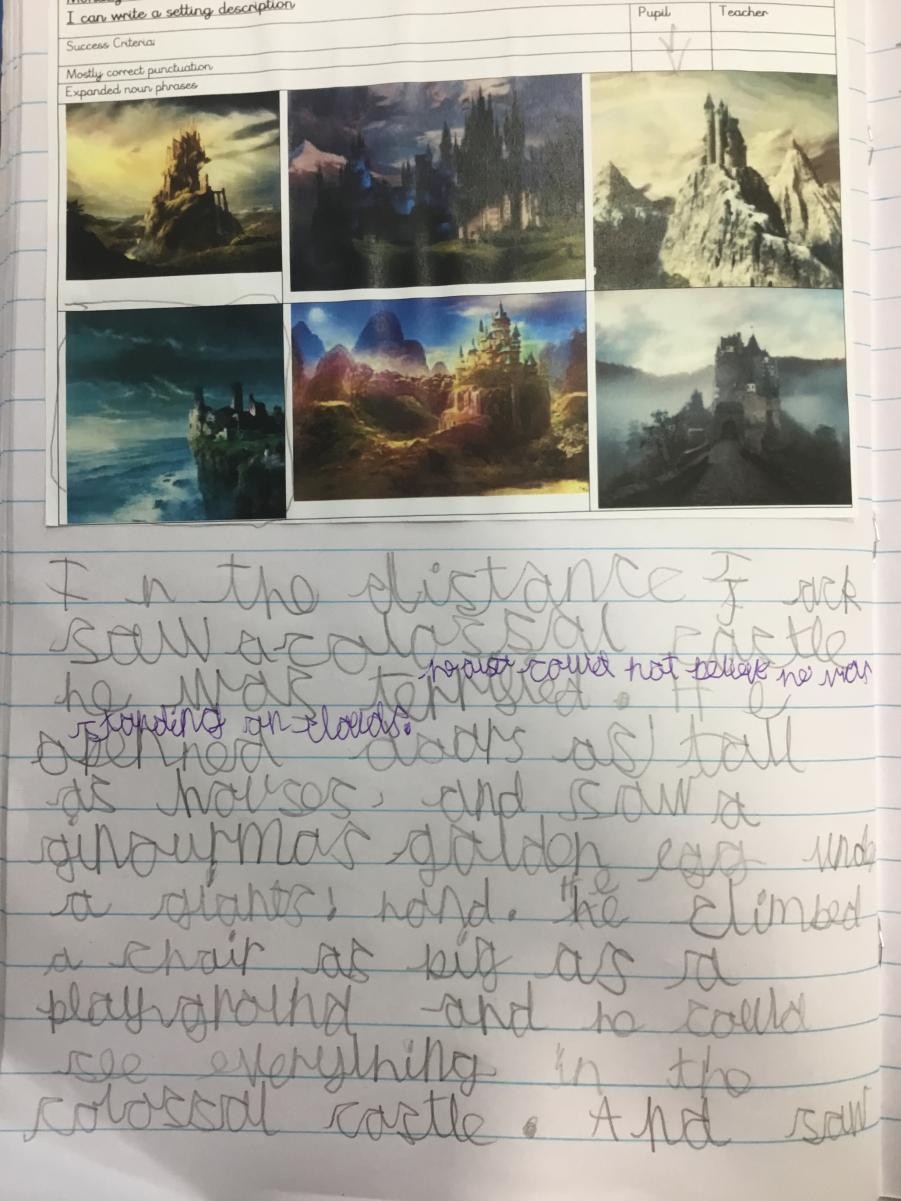 I can write a setting description
Pupil Teacher
Success Criteria:
Mostly correct punctuation
Expanded noun phrases
In the distance Jack
saw a colossal castle
he just could not believe he was
he was terrifyed. He
standing on clouds.
openned doors as tall
as houses, and saw a
ginourmas golden egg unde
a giants' hand. He climbed
a chair as big as a
playground and he could
see everything in the
colossal castle. And saw